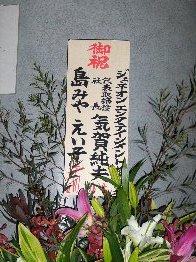 御祝
ジェネオンエンタテインメント
代表取締役
社長
気賀純夫
島みやえい子